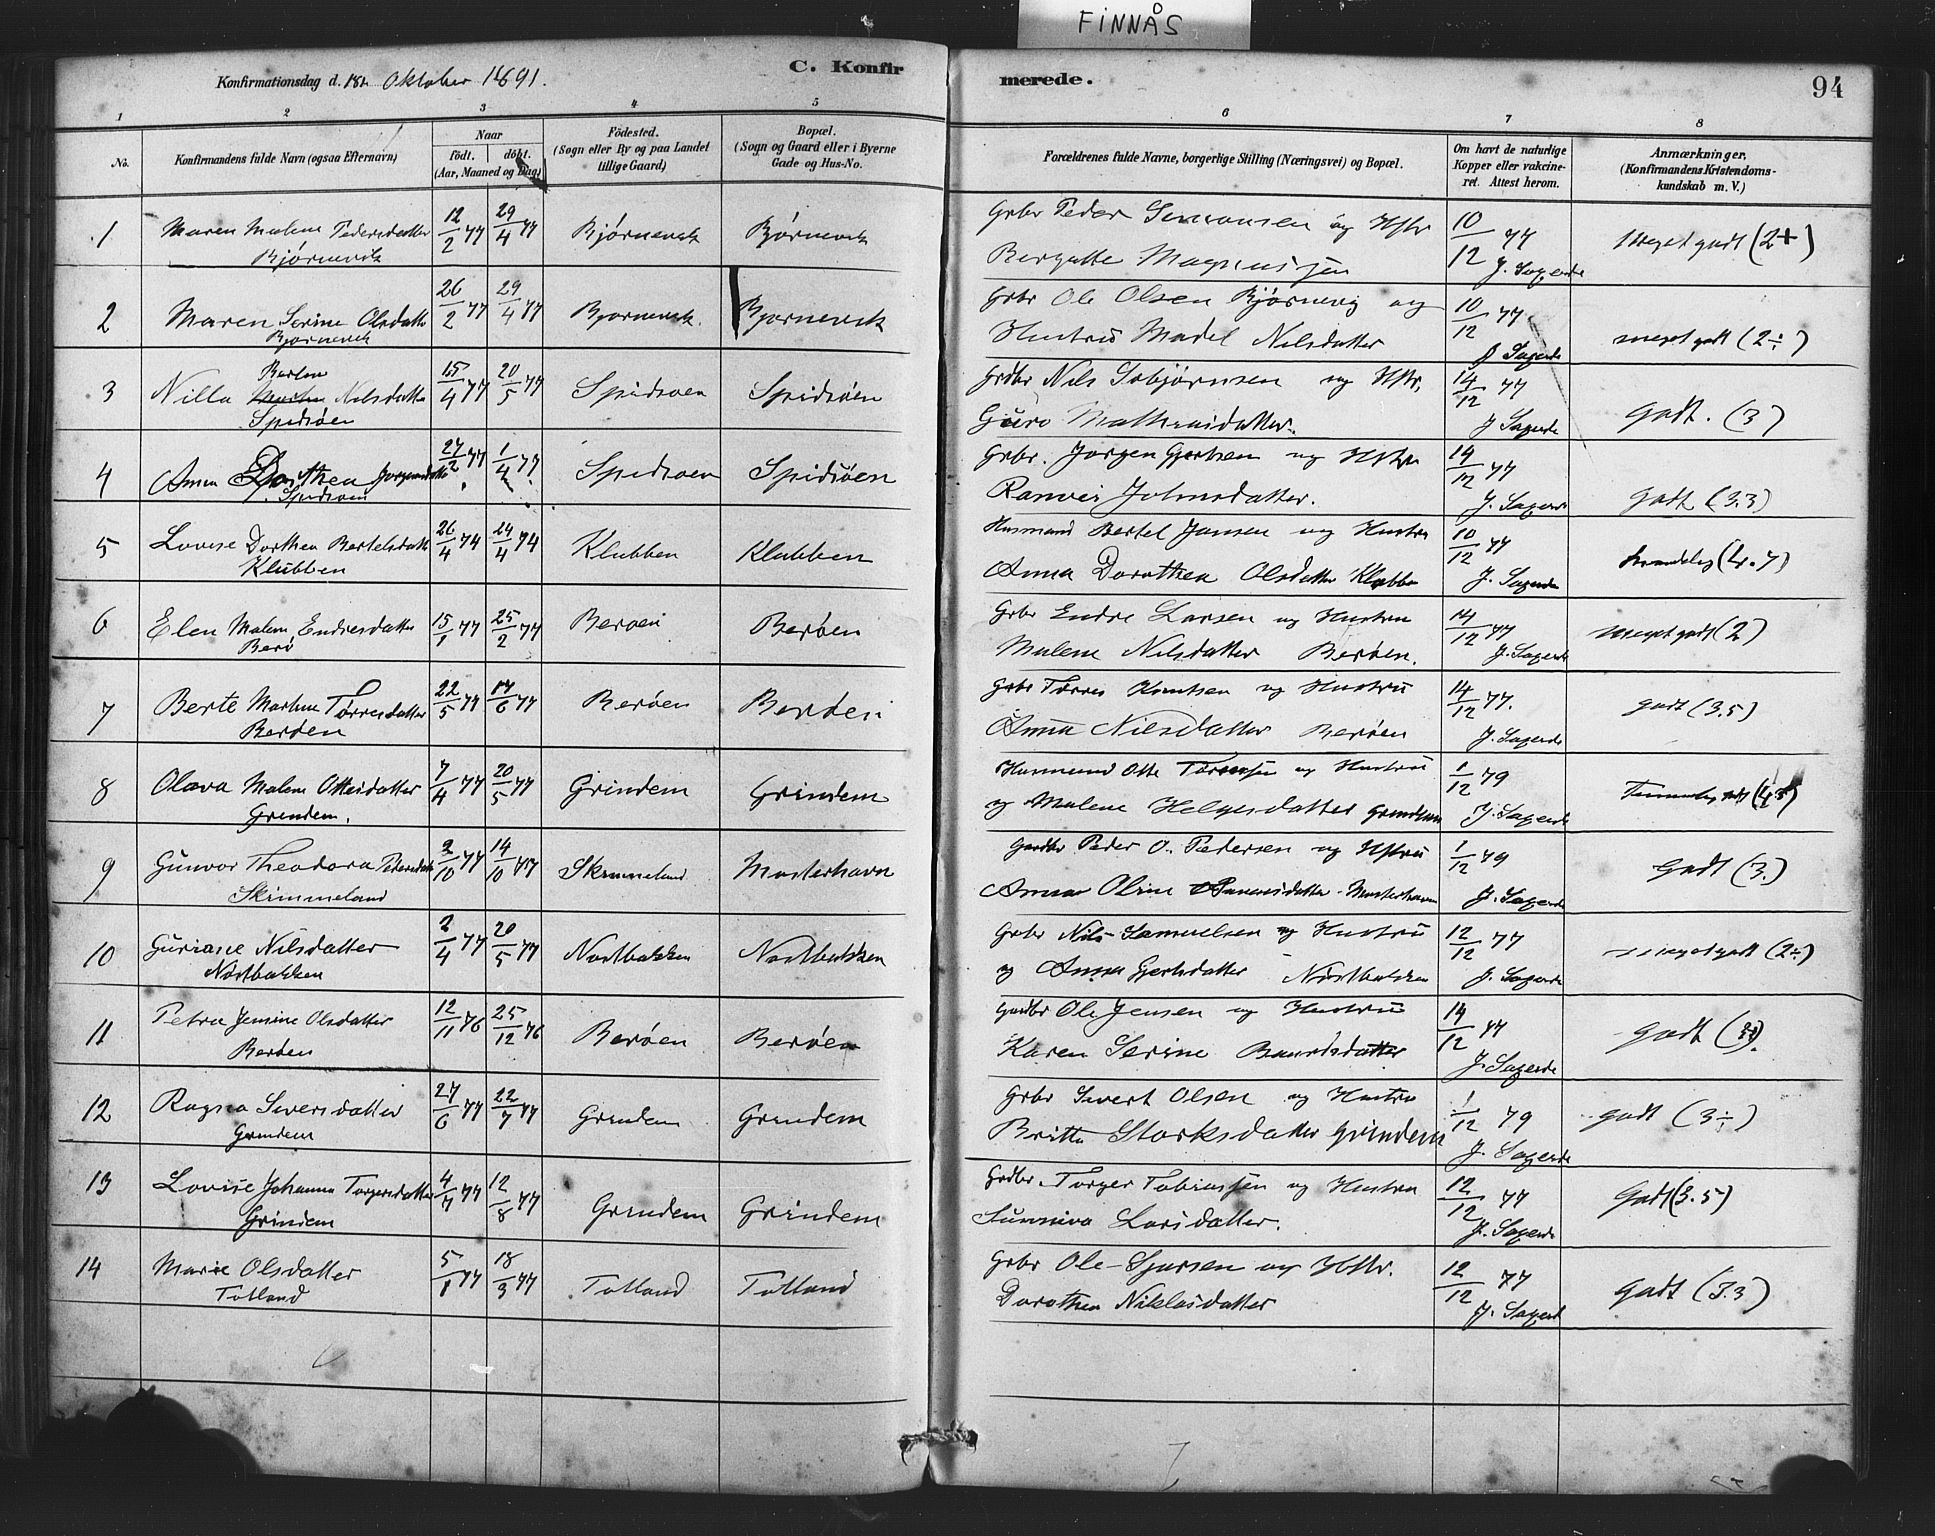 FINNÅS
Konfirmationsdag d. 18de Oktober 1891.
C. Konfirmerede.
94
1 2 3 4 5 6 7 8
No.
Konfirmandens fulde Navn (ogsaa Efternavn)
Naar
födt. döbt.
(Aar, Maaned og Dag)
Födested.
(Sogn eller By og paa Landet
tillige Gaard)
Bopæl.
(Sogn og Gaard eller i Byerne
Gade og Hus-No.
Forældrenes fulde Navne, borgerlige Stilling (Næringsvei) og Bopæl.
Om havt de naturlige
Kopper eller vakcine-
ret. Attest herom.
Anmærkninger.
(Konfirmandens Kristendoms-
kundskab m. V.)
1 Maren Malene Pedersdatter 12/2 77 29/4 77 Bjørnevik Bjørnevik Grbr Peder Simonsen og Hstr 10/12 77 Meget godt (2+)
Bjørnevik Magnus J. Sagende
2 Maren Serine Olsdatter 26/2 77 29/4 77 Bjørnevik. Bjørnevik Grbr Ole Olsen Bjørnevig og 10/12 77 meget godt (2÷)
Bjørnevik Hustru Madel Nilsdatter J. Sagende
3 Nilla Berthe Nilsdatter 15/4 77 20/5 77 Spidsøen Spidsøen Grdbr Nils og Hstr. 14/12 77 Godt. (3)
Spidsøen Guro Mathiasdatter. J. Sagende
4 Anna Dorthea Jørgensdatter 27/2 77 1/4 77. Spidsøen Spidsøen Grbr. Jørgen Gjertsen og Hstru 14/12 77 Godt (3.3)
Spidsøen Ranvei Johnsdatter. J. Sagende
5 Lovise Dorthea Bertelsdatter 26/4 74 24/4 74 Klubben Klubben Husmand Bertel Jansen og Hustru 10/12 77
Klubben Anna Dorothea Olsdatter Klubben J. Sagende
6 Elen Malene Endresdatter 15/1 77 25/2 77 Berøen Berøen Grbr Endre Larsen og Hustru 14/12 77 Meget godt (2)
Berø Malene Nilsdatter Berøen. J. Sagende
7 Berte Marthe Tørresdatter 22/5 77 17/6 77 Berøen Berøen Grbr Tørres Knutsen og Hustru 14/12 77. godt (3.5)
Berøen Anna Nilsdatter Berøen J. Sagende
8 Olava Malene Ottesdatter 7/4 77 20/5 77 Grindem Grindem Husmand Otte og Hustru 1/12 79
Grindem. og Malene Helgesdatter Grindem J. Sagende
9 Gunvor Theodora Pedersdatter 2/10 77 14/10 77 Skimmeland Mosterhavn Gardbr Peder O. Pedersen og Hstru 1/12 79 Godt (3.)
Skimmeland Anna Oline Mosterhavn J. Sagende
10 Guriane Nilsdatter 2/4 77 20/5 77 Nordbakken Nordbakken Grbr Nils Samuelsen og Hustru 12/12 77 meget godt (2÷)
Nordbakken og Anna Gjertsdatter Nordbakken J. Sagende
11 Petra Jensine Olsdatter 12/11 76 25/12 76 Berøen Berøen Gardbr Ole Jensen og Hustru 14/12 77 Godt
Berøen Karen Serine Baardsdatter J. Sagende
12 Ragna Siversdatter 27/6 77 22/7 77 Grindem Grindem Grbr Sivert Olsen og Hustru 1/12 79 godt (3÷)
Grindem Britta Storksdatter Grindem J. Sagende
13 Lovise Johanna Torgersdatter 4/7 77 12/8 77 Grindem Grindem Grdbr. Torger Tobiassen og Hustru 12/12 77 Godt (3.5)
Grindem Sunniva Larsdatter. J. Sagende
14 Marie Olsdatter 5/1 77 18/3 77 Totland Totland Grbr Ole Sjursen og Hstr. 12/12 77 godt (3.3)
Totland Dorothea Niklasdatter J. Sagende